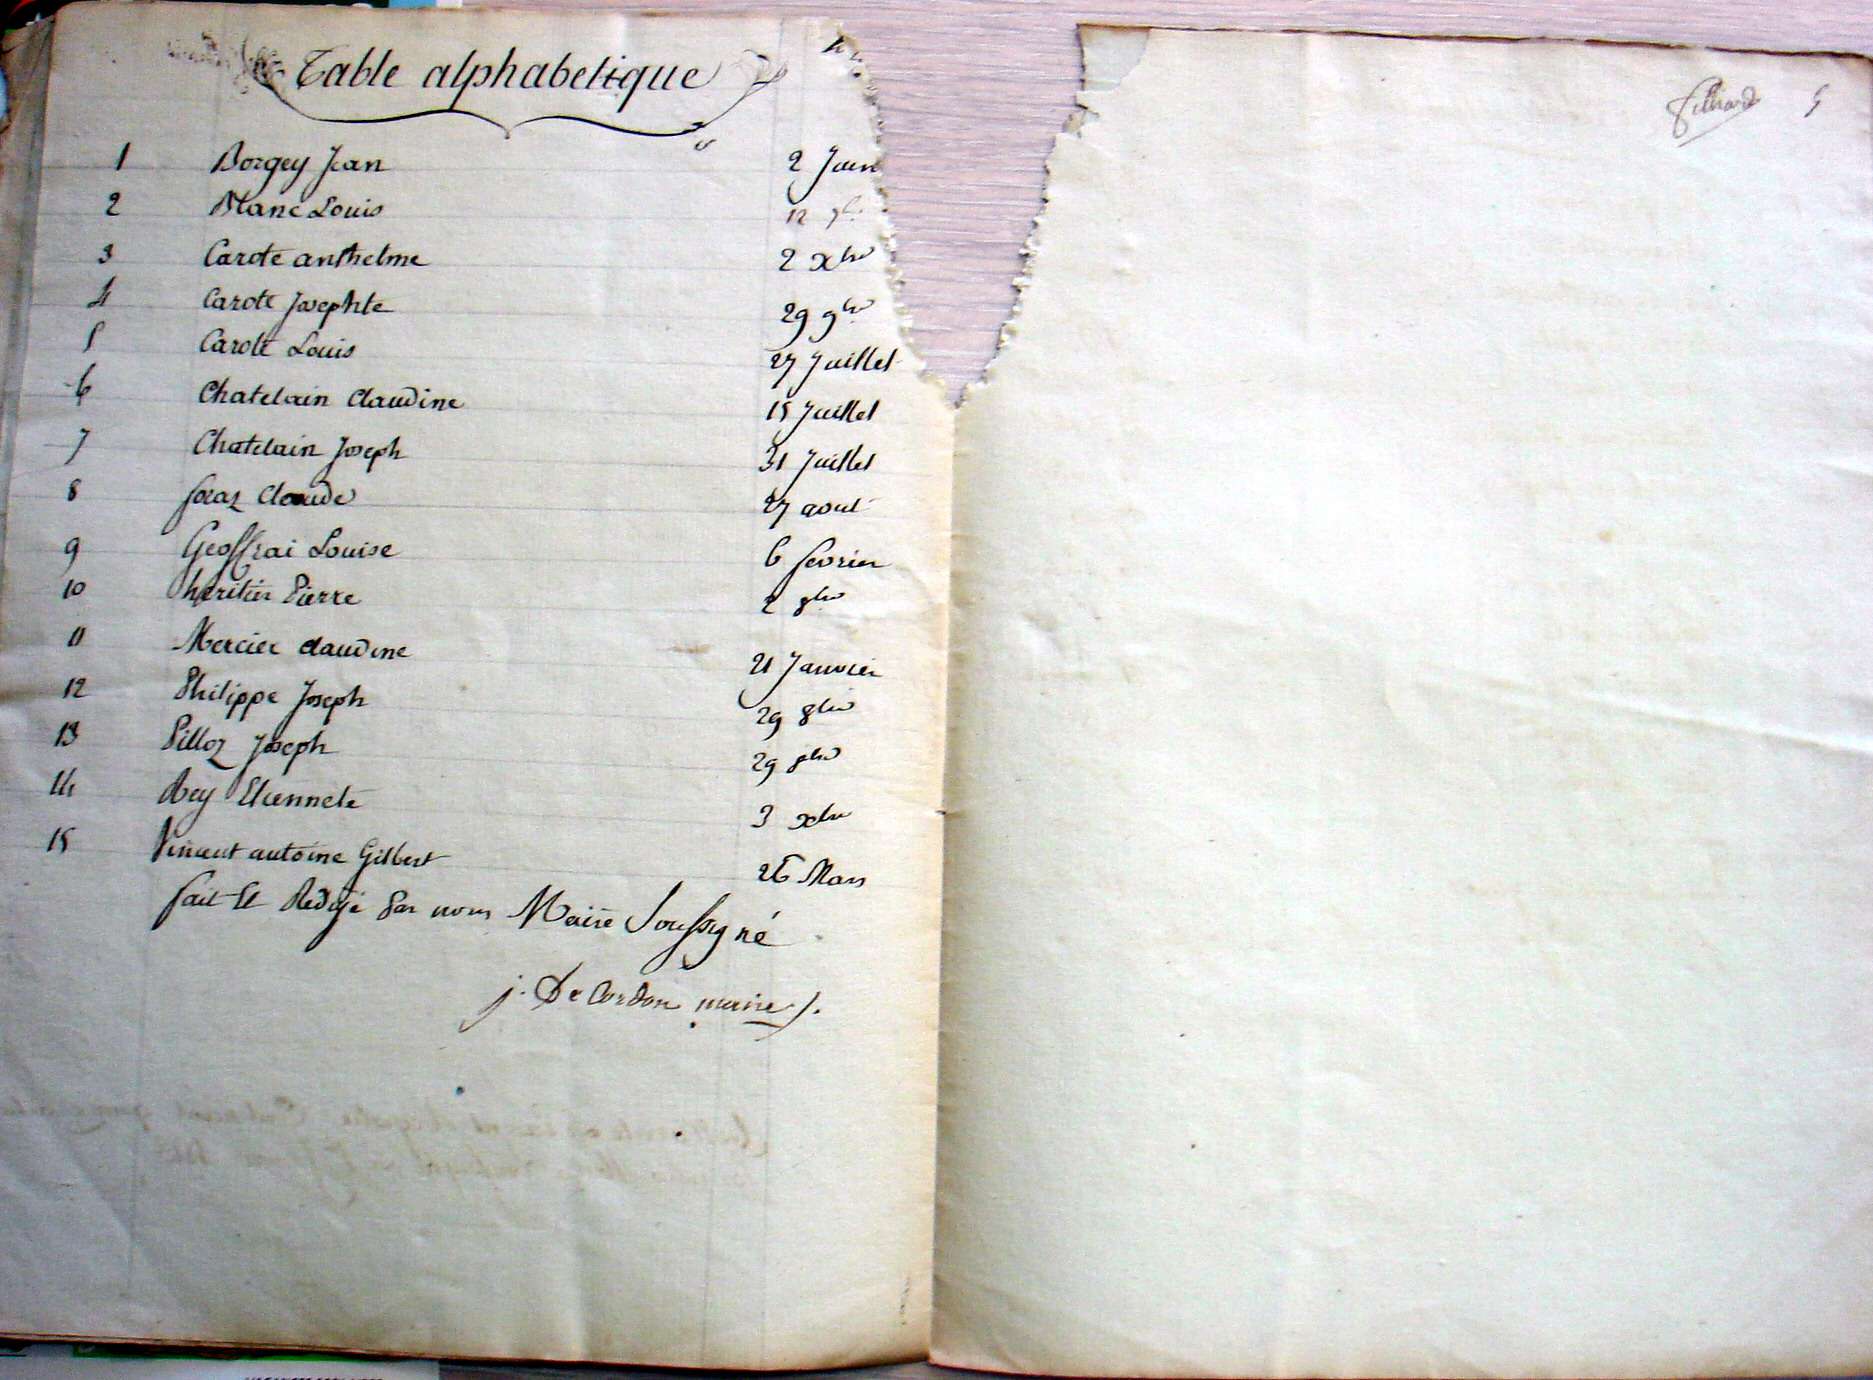 Table alphabetique
1 Borgey Jean 2 Juin
2 Blanc Louis 12
3 Carote anthelme 2 xbre
4 Carote Josephte 29 9bre
5 Carote Louis 27 Juillet
6 Chatelain Claudine 15 Juillet
7 Chatelain Joseph 31 Juillet
8 foraz Claude 27 aout
9 Geoffrai Louise 6 fevrier
10 heritier Pierre 2 8bre
11 Mercier claudine 21 Janvier
12 Philippe Joseph 29 8bre
13 Pilloz Joseph 29 8bre
14 Rey Etiennete 3 xbre
15 Vincent antoine Gilbert 26 Mars
fait Et Redigé Par nous Maire Soussigné
j. De Cordon maire